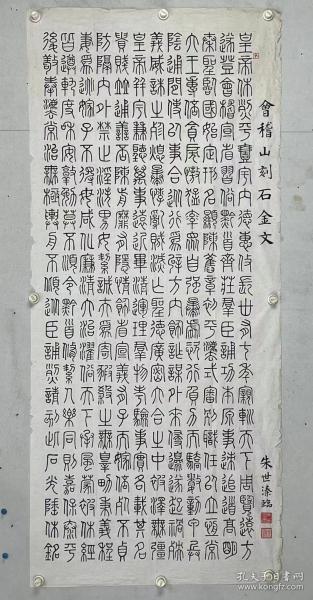 會稽山刻石金文
皇帝休烈平壹宇內德惠攸長卅有七年親軔天下周覽遠方
遂登會稽宣省習俗黔首齊莊羣臣誦功本原事迹追道高明
秦聖臨國始定刑名顯陳舊章初平灋式審別職任以立恆常
六王專倍貪戾慠猛率眾自強暴虐恣行負力而驕數動甲兵
陰通閒使以事合從行為辟方內飾詐謀外來侵邊遂起禍殃
義威誅之殄熄暴悖亂賊滅亡聖德廣密六合之中被澤無彊
皇帝并宇兼聽萬事遠近畢清運理羣物考驗事實各載其名
貴賤並通善否陳前靡有隱情飾省宣義有子而嫁倍死不貞
防隔內外禁止淫泆男女絜誠夫為寄豭殺之無罪男秉義程
妻為逃嫁子不得母咸化廉清大治濯俗天下承風蒙被休經
皆遵軌度和安敦勉莫不順令黔首脩絜人樂同則嘉保泰平
後敬奉灋常治無極輿舟不傾從臣誦烈請刻此石光陲休銘
朱世滌臨